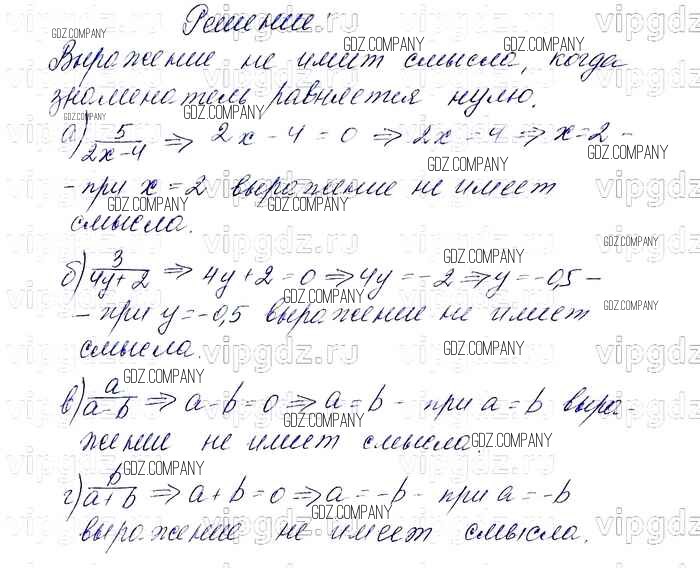 Решение:
Выражение не имеет смысла, когда
знаменатель равняется нулю.
а) 5/(2x-4) => 2x-4=0 => 2x=4 => x=2 -
- при x=2 выражение не имеет
смысла.
б) 3/(4y+2) => 4y+2=0 => 4y=-2 => y=-0,5 -
- при y=-0,5 выражение не имеет
смысла.
в) a/(a-b) => a-b=0 => a=b - при a=b выра-
жение не имеет смысла.
г) b/(a+b) => a+b=0 => a=-b - при a=-b
выражение не имеет смысла.
GDZ.COMPANY
vipgdz.ru